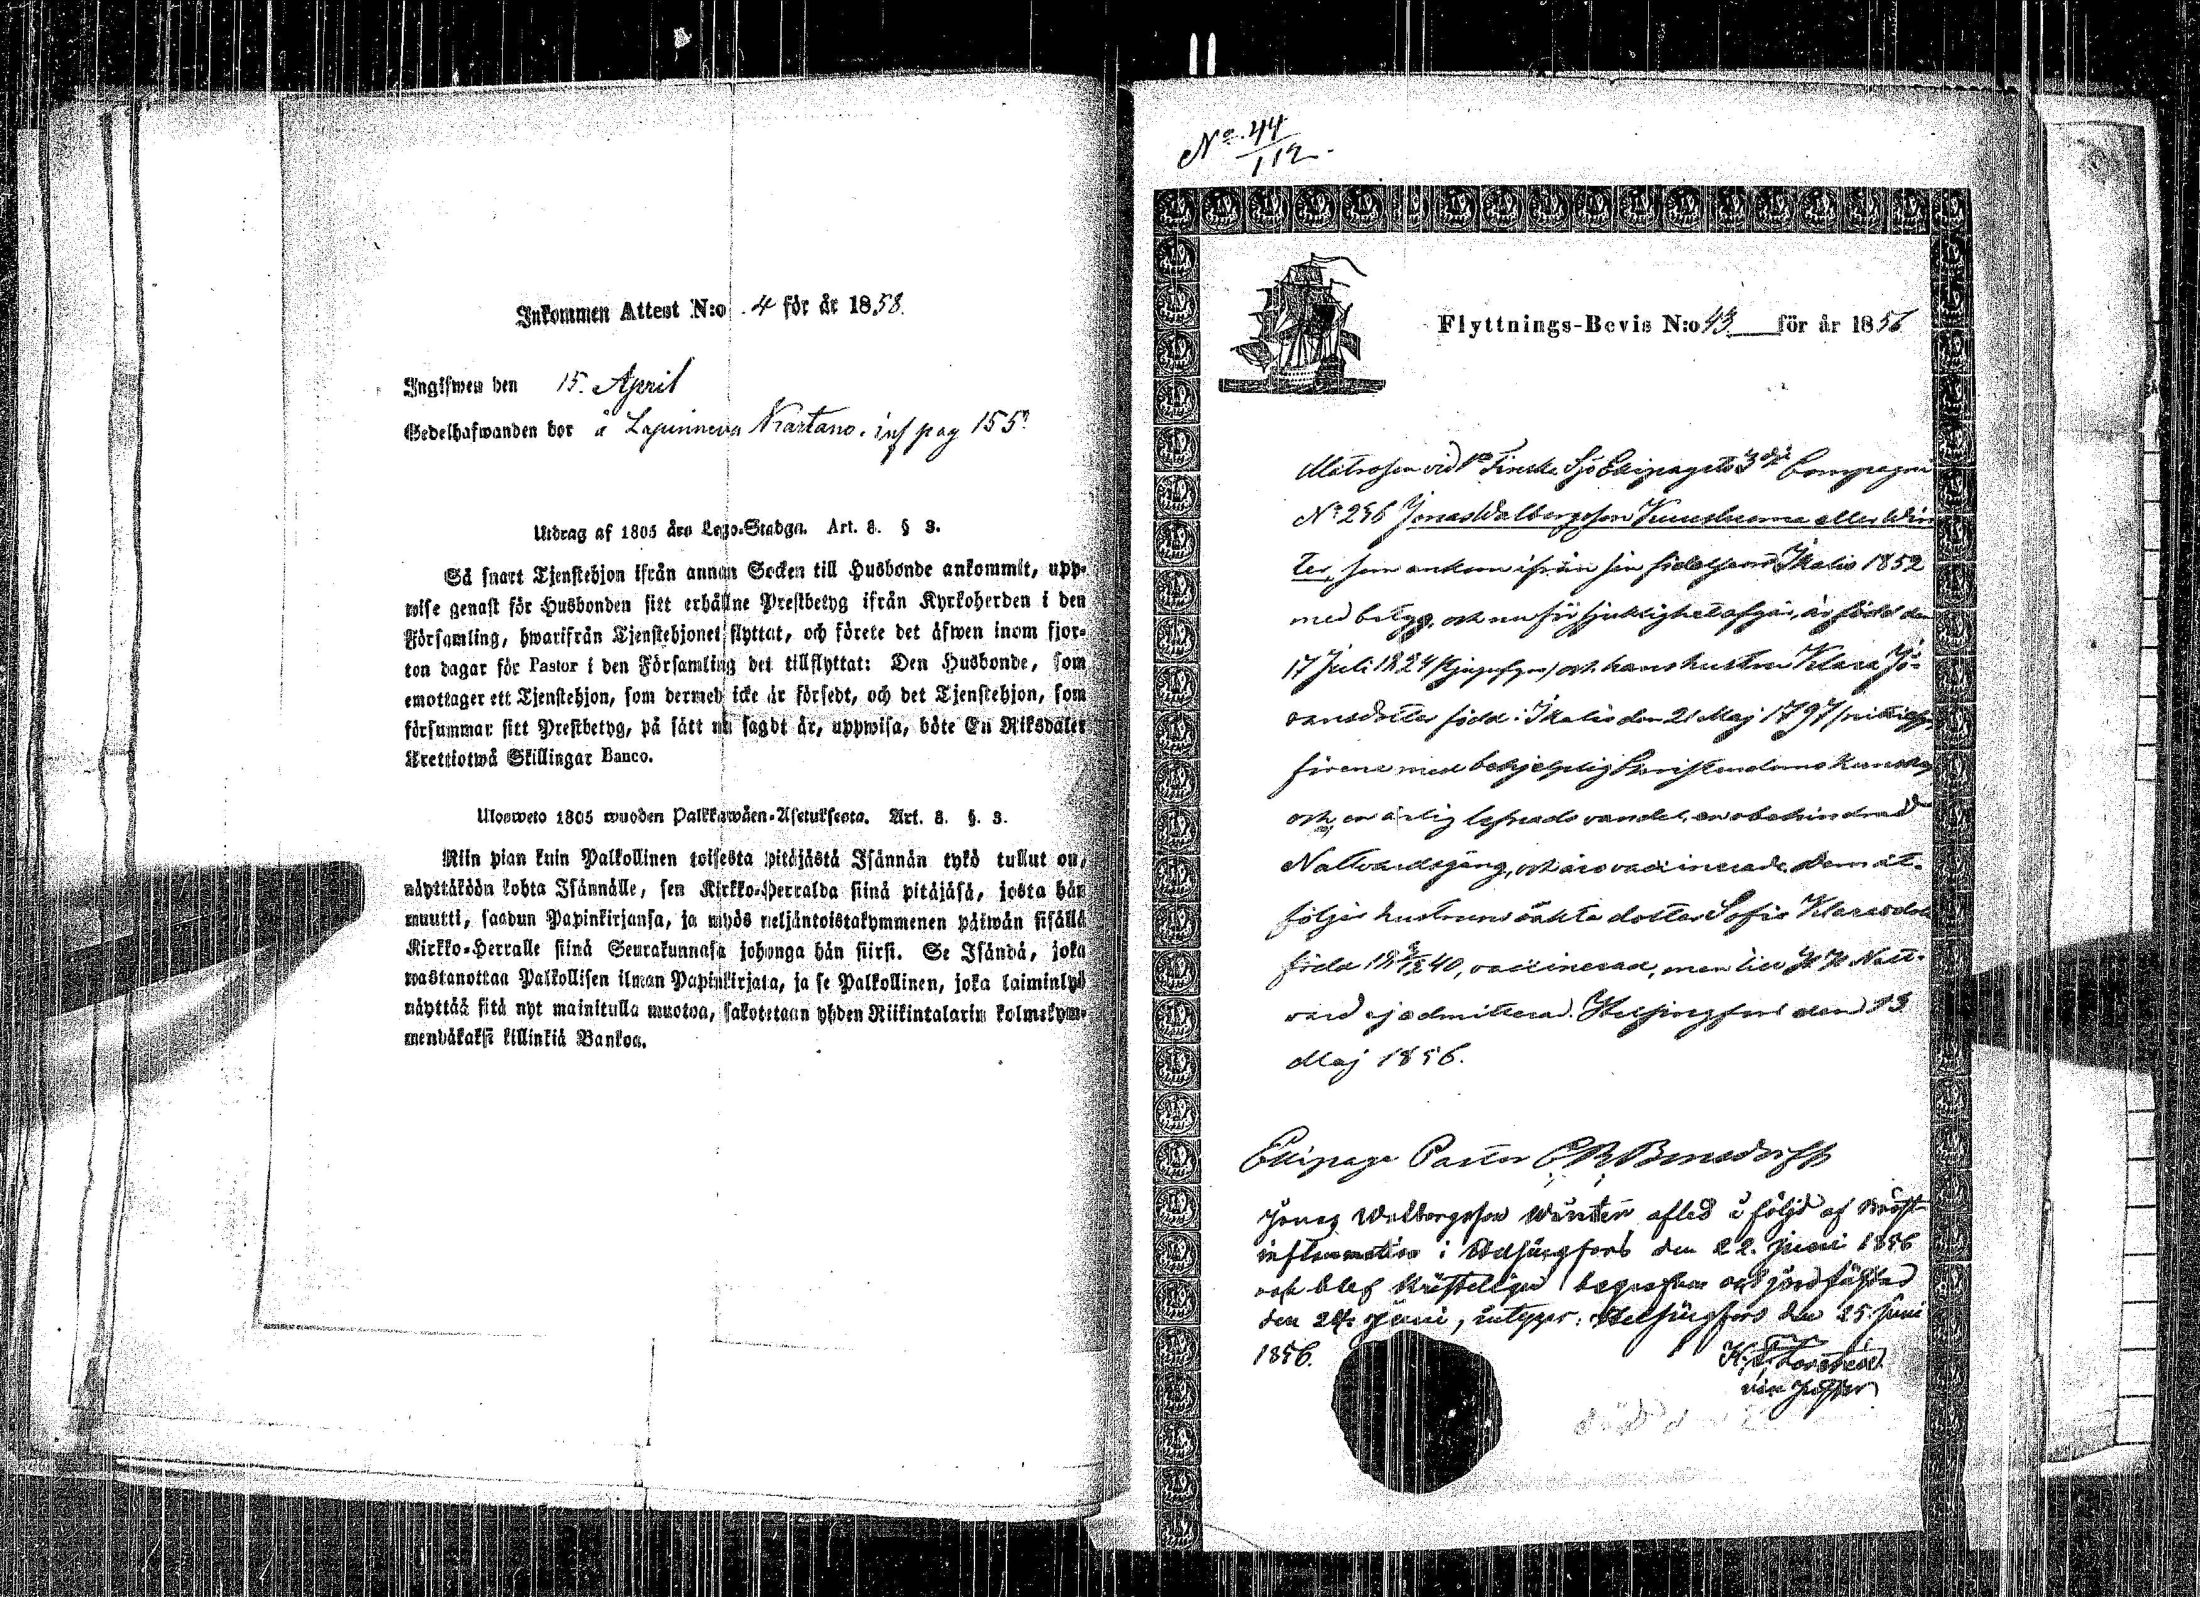 Inkommen Attest N:o 4 för år 1858.
Ingifwen den 15. April
Gedelhafwanden bor å Lapinneva Nrartano. inf pag 155.
Utdrag af 1805 års Lego-Stadga. Art. 3. § 3.
Så snart Tjenstehjon ifrån annan Socken till Husbonde ankommit, upp-
wise genast för Husbonden sitt erhållne Prestbetyg ifrån Kyrkoherden i den
Församling, hwarifrån Tjenstehjonet flyttat, och förete det äfwen inom fjor-
ton dagar för Pastor i den Församling det tillflyttat: Den Husbonde, som
emottager ett Tjenstehjon, som dermed icke är försedt, och det Tjenstehjon, som
försummar sitt Prestbetyg, på sätt nu sagdt är, uppwisa, böte En Riksdaler
Trettiotwå Skillingar Banco.
Ulosweto 1805 wuoden Palkkawäen-Asetuksesta. Art. 3. §. 3.
Niin pian kuin Palkollinen toisesta pitäjästä Isännän tykö tullut on,
näyttäköön kohta Isännälle, sen Kirkko-Herralda siinä pitäjäsä, josta hän
muutti, saadun Papinkirjansa, ja myös neljäntoistakymmenen päiwän sisällä
Kirkko-Herralle siinä Seurakunnasa johonga hän siirsi. Se Isändä, joka
wastanottaa Palkollisen ilman Papinkirjata, ja se Palkollinen, joka laiminlyö
näyttää sitä nyt mainitulla muotoa, sakotetaan yhden Riikintalarin kolmekym-
mendäkaksi killinkiä Bankoa.
No. 44
112.
Flyttnings-Bevis N:o 43 för år 1856
Matrosen vid 1a Finska Sjö Ekipagets 3dje Compagni
No 296 Jonas Walborgsson eller Win
ter, som ankom ifrån sin födelseort Ikalis 1852
med betyg, och nu för sjuklighet afgår, är född den
17 Juli 1824 och hans hustru Klara Jo-
hansdotter född i Ikalis den 21 Maj 1797
förena med behjelplig Christendoms kunskap
och en ärlig lefnads vandel, en obehindrad
Nattvardsgång, och äro vaccinerade. Dem åt-
följer hustruns oäkta dotter Sofia Klarasdotr
född 18 40, vaccinerad, men till H H Natt-
vard ej admitterad. Helsingfors den 13
Maj 1856.
Ekipage Pastor
Jonas Walborgsson Winter afled i följd af Bröst-
inflammation i Helsingfors den 22. Juni 1856
och blef kristeligen begrafven och jordfästad
den 24. Juni, intygar. Helsingfors den 25. Juni
1856.